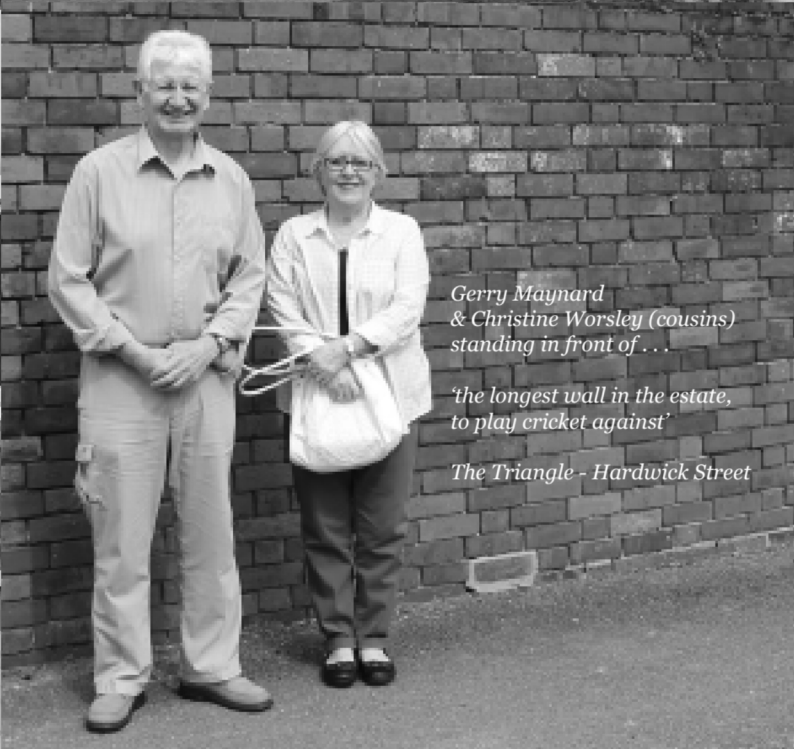 Gerry Maynard
& Christine Worsley (cousins)
standing in front of . . .
‘the longest wall in the estate,
to play cricket against’
The Triangle - Hardwick Street